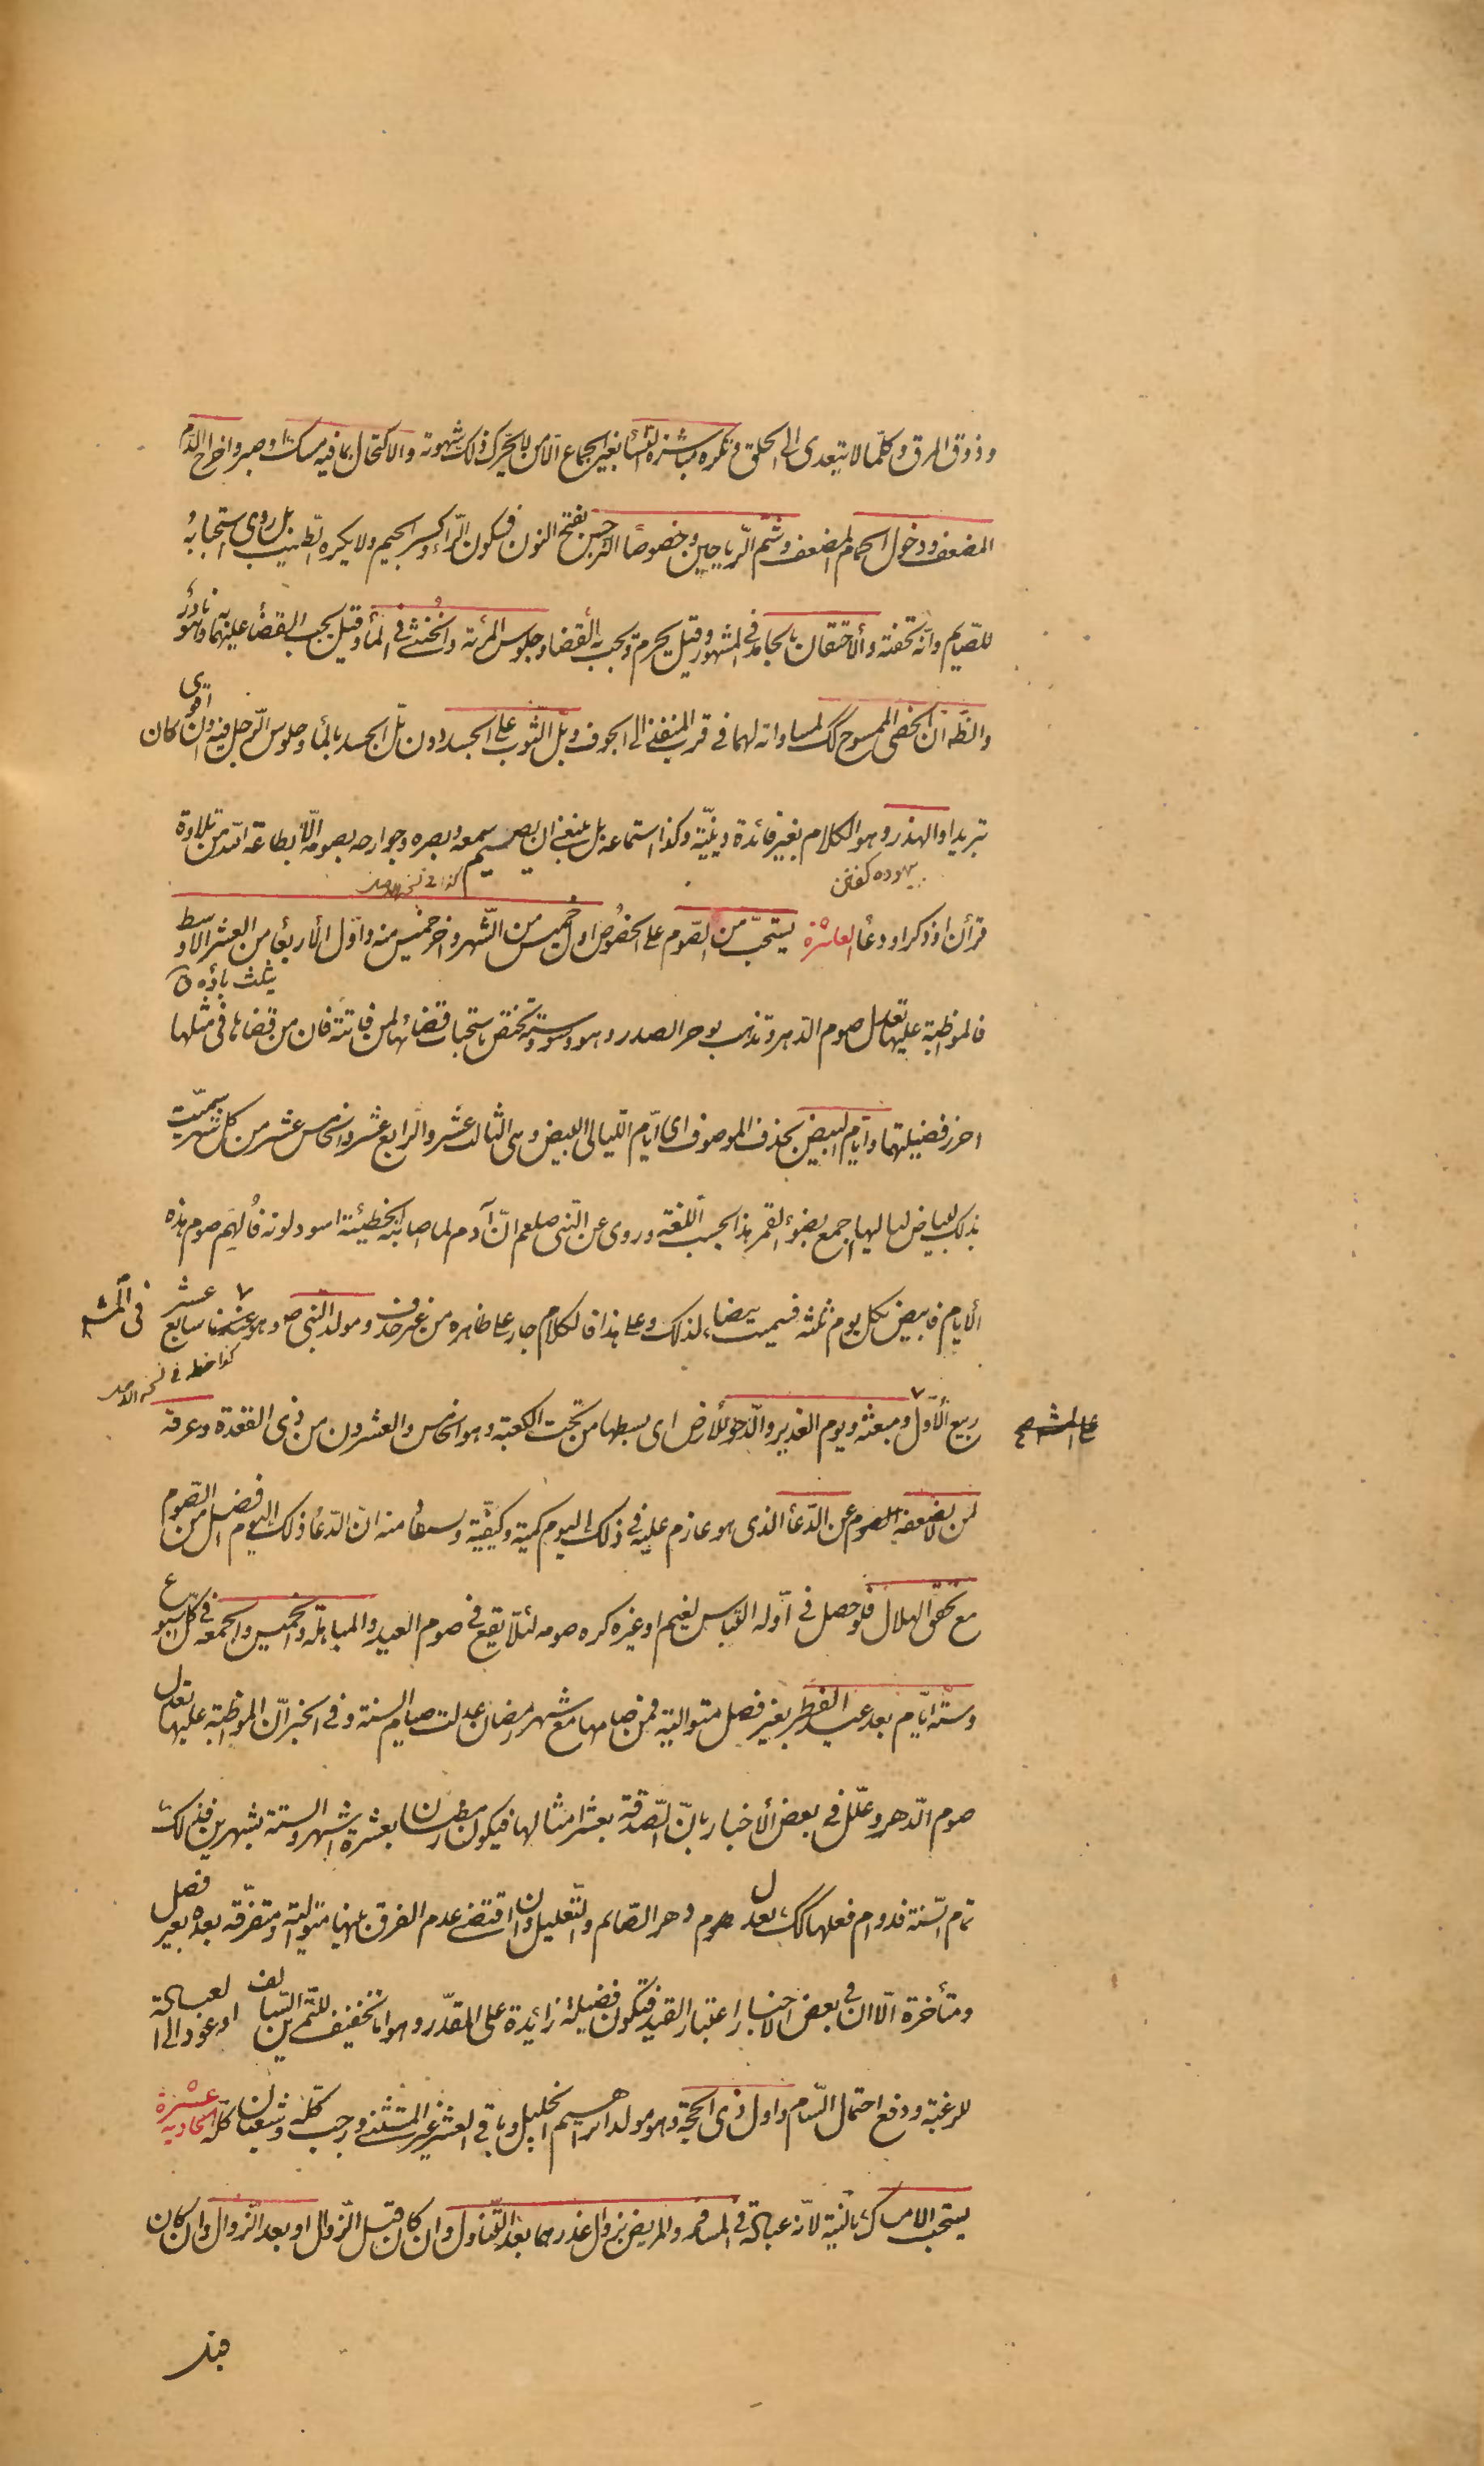 وذوق المرق وكلّما لا يتعدى الى الحلق وتكره مباشرة النساء بغير الجماع الّا من لا يحرّك ذلك شهوته والاكتحال بما فيه مسك او صبر واخراج الدّم
المضعف ودخول الحمام المضعف وشم الرّياحين وخصوصًا النرجس بفتح النون فسكون الرّاء وكسر الجيم ولا يكره الطّيب بل روى استحبابه
للصّيام وانّه تحفته والاحتقان بالجامد في المشهور وقيل يحرم ويجب به القضاء وجلوس المرئة والخُنثى في الماء وقيل يجب القضاء عليهما به وهو نادر
والظّ انّ الخصى الممسوح كك لمساواته لهما في قرب المنفذ الى الجوف وبلّ الثوب على الجسد دون بلّ الجسد بالماء وجلوس الرّجل فيه وان كان اقوى
تبريدا والهذر وهو الكلام بغير فائدة دينيّة وكذا استماعه بل ينبغى ان يصمّ سمعه وبصره وجوارحه بصومه الّا بطاعة اللّه من تلاوة
بيهوده كفتن
كذا في نسخة الاصل
قرأن او ذكر او دعاء العاشرة يستحبّ من الصّوم على الخصُوص اوّل خميس من الشّهر واخر خميس منه واوّل الأربعاء من العشر الاوسط
يثلث باؤه
فالمواظبة عليها تعدل صوم الدّهر وتذهب بوحر الصدر وهو وسوسته وتختصّ باستحباب قضائها لمن فاتته فان من قضاها في مثلها
احرز فضيلتهما وايّام البيض بحذف الموصوف اى ايّام اللّيالى البيض وهى الثالث عشر والرّابع عشر والخامس عشر من كلّ شهر سمّيت
بذلك لبياض لياليها اجمع بضوء القمر هذا بحسب اللّغة وروى عن النّبى صلعم انّ آدم لما اصابته الخطيئة اسود لونه فاُلهِم صوم هذه
الأيام فابيض بكل يوم ثلثه فسميت بيضا لذلك وعلى هذا فالكلام جار على ظاهره من غير حذف ومولد النّبى ص وهو عندنا سابع عشر في المش
كذا خط في نسخة الاصل
ربيع الأوّل ومبعثه ويوم الغدير والدّحو للأرض اى بسطها من تحت الكعبة وهو الخامس والعشرون من ذى القعدة وعرفة
على المش
لمن لا يضعفه الصوم عن الدّعاء الذى هو عازم عليه في ذلك اليوم كمية وكيفيّة ويستفاد منه انّ الدّعاء ذلك اليوم افضل من الصّوم
مع تحقق الهلال فلو حصل في اوّله التباس لغيم او غيره كره صومه لئلّا يقع في صوم العيد والمباهلة والخميس والجمعة في كلّ اسبوع
وستّة ايّام بعد عيد الفطر بغير فصل متوالية فمن صامها مع شهر رمضان عدلت صيام السنة وفي الخبر انّ المواظبة عليها تعدل
صوم الدّهر وعلّل في بعض الأخبار بانّ الصّدقة بعشر امثالها فيكون رمضان بعشرة اشهر والستة بشهرين فذلك
تمام السّنة فدوام فعلها كك يعدل صوم دهر الصّائم والتّعليل وان اقتضى عدم الفرق بينها متوالية ومتفرّقة بعده بغير فصل
ومتأخرة الّا ان في بعض الاخبار اعتبار القيد فتكون فضيلة زائدة على المقدّر وهو امّا تخفيف للتّمرين السّالف او عود الى العبادة
للرغبة ودفع احتمال السّام واول ذى الحجّة وهو مولد ابراهيم الخليل وباقى العشر غير المستثنى ورجب كلّه وشعبان كلّه الحادية عشرة
يستحب الامساك بالنية لانّه عبادة في المسافر والمريض بزوال عذرهما بعد التّناول وان كان قبل الزّوال او بعد الزّوال وان كان
قبل